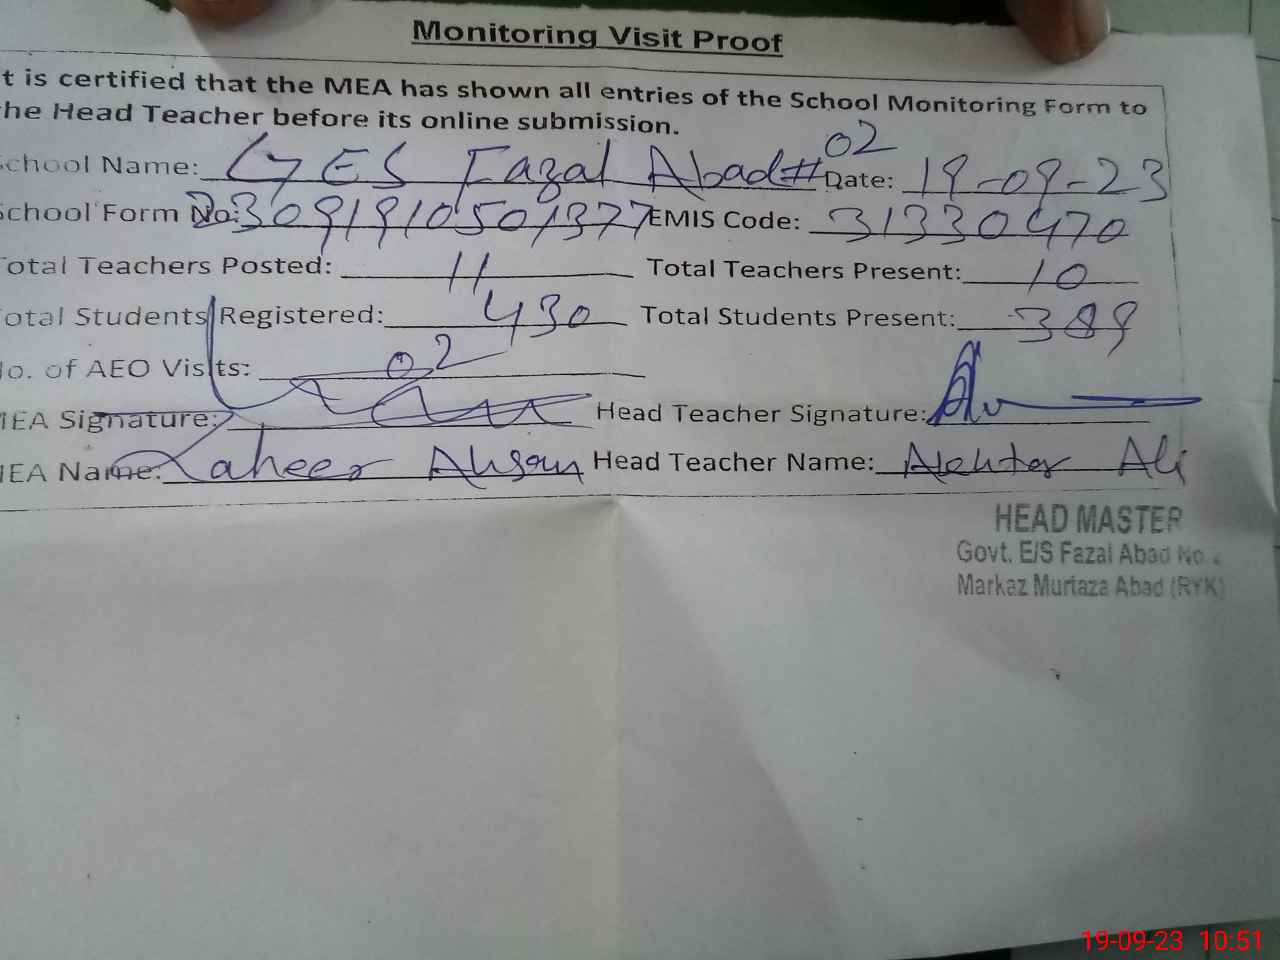 Monitoring Visit Proof
t is certified that the MEA has shown all entries of the School Monitoring Form to
he Head Teacher before its online submission.
chool Name: GES Fazal Abad# 02 Date: 19-09-23
School Form No: 23091910501377 EMIS Code: 31330470
Total Teachers Posted: 11 Total Teachers Present: 10
otal Students Registered: 430 Total Students Present: 389
No. of AEO Visits: 02
MEA Signature: Head Teacher Signature:
MEA Name: Zaheer Ahsan Head Teacher Name: Akhtar Ali
HEAD MASTER
Govt. E/S Fazal Abad No. 2
Markaz Murtaza Abad (RYK)
19-09-23 10:51